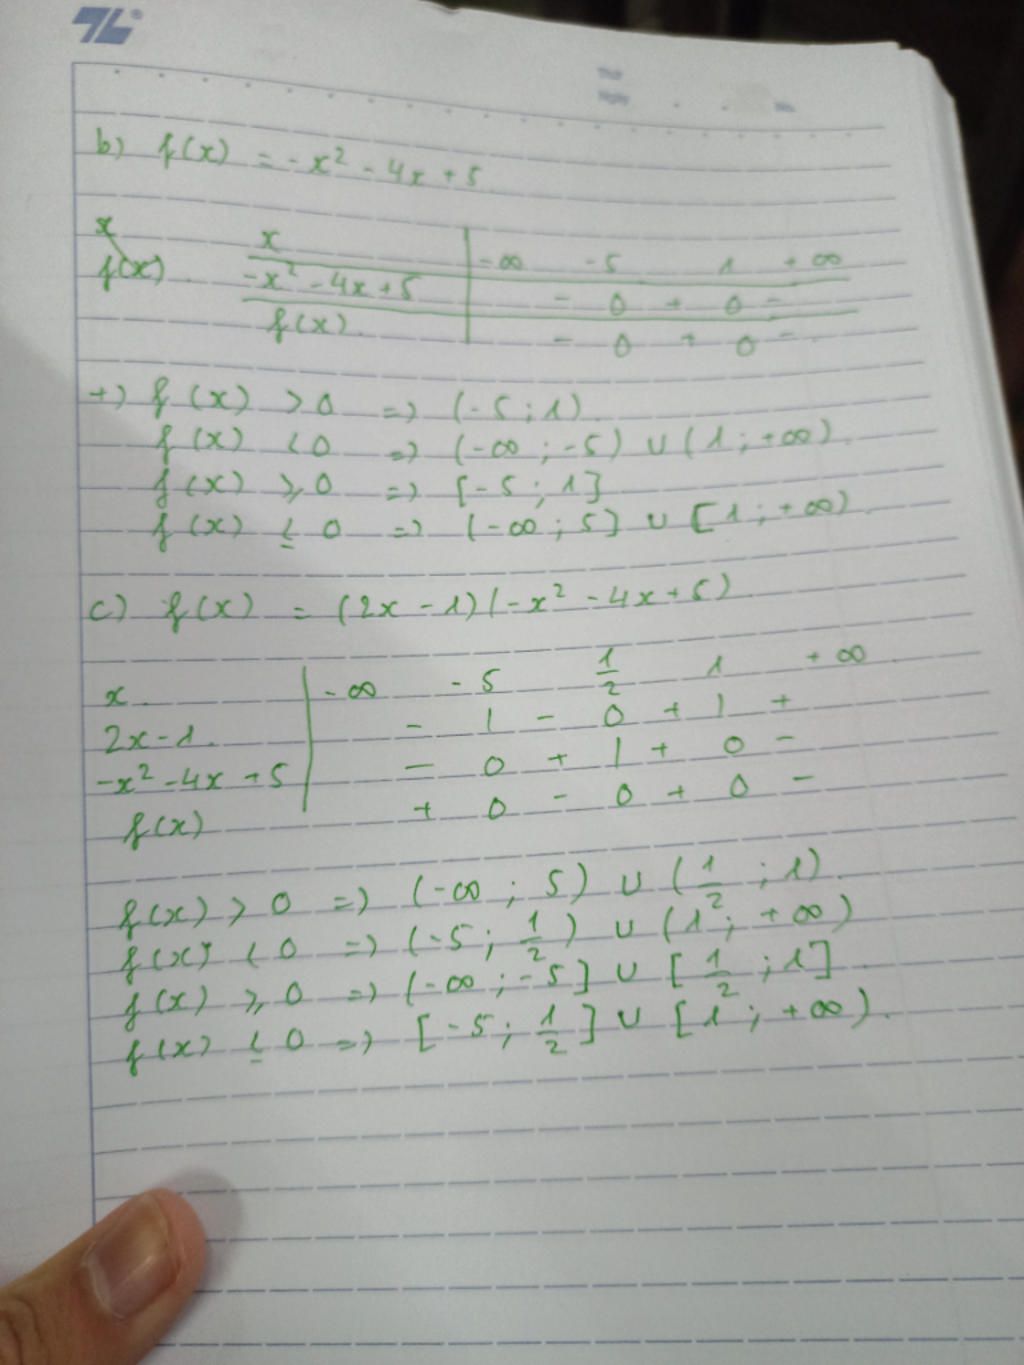 TL
Thứ
Ngày
b) f(x) = -x² - 4x + 5
x x -∞ -5 1 +∞
f(x) -x² - 4x + 5 - 0 + 0 -
f(x) - 0 + 0 -
+) f(x) > 0 => (-5 ; 1)
f(x) < 0 => (-∞ ; -5) ∪ (1 ; +∞)
f(x) ⩾ 0 => [-5 ; 1]
f(x) ≤ 0 => (-∞ ; 5] ∪ [1 ; +∞)
c) f(x) = (2x - 1)(-x² - 4x + 5)
x -∞ -5 1/2 1 +∞
2x - 1 - | - 0 + | +
-x² - 4x + 5 - 0 + | + 0 -
f(x) + 0 - 0 + 0 -
f(x) > 0 => (-∞ ; 5) ∪ (1/2 ; 1)
f(x) < 0 => (-5 ; 1/2) ∪ (1 ; +∞)
f(x) ⩾ 0 => (-∞ ; -5] ∪ [1/2 ; 1]
f(x) ≤ 0 => [-5 ; 1/2] ∪ [1 ; +∞).